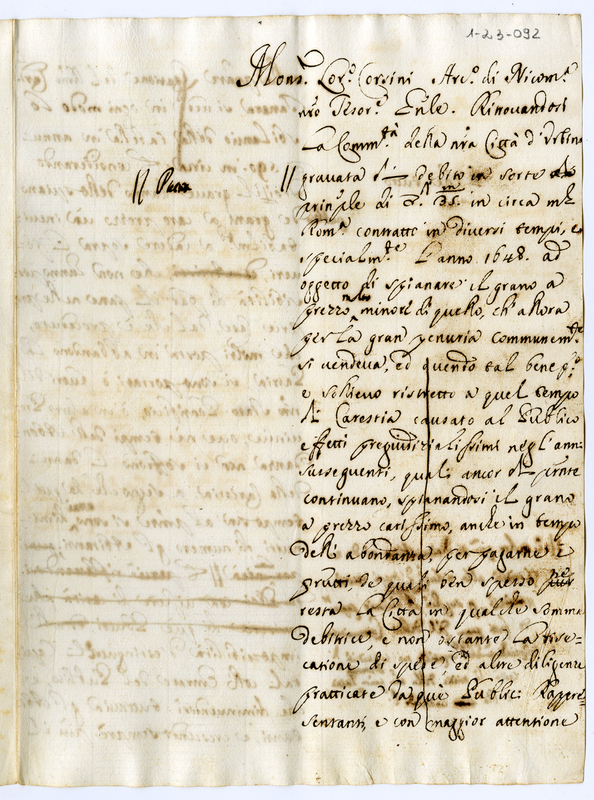 1-23-092
Mons.r Lor.o Corsini Arc.o di Nicom.a
nro Tesor.e Gnle. Rinovandosi
La Comm.tà della nra Città d'Urbino
gravata di debito in sorte
// Pnu //
prin.ple di d. m/35. in circa m.ta
Rom.a contratto in diversi tempi, e
specialm.te L'anno 1648. ad
oggetto di spianare il grano a
prezzo molto minore di quello, ch'allora
per la gran penuria communem.te
si vendeva, ed quendo tal bene
e sollievo ristretto a quel tempo
di Carestia causato al Publico
effetti pregiudizialissimi negl'anni
susseguenti, quali ancor di pnte
continuano, spianandosi il grano
a prezzo carissimo, anche in tempo
dell'abondanza, per pagarne i
frutti, de quali ben spesso ne
resta La Città in qualche somma
debitrice, e non ostante La rise=
catione di spese, ed altre diligenze
pratticate da què Public: Rappre=
sentanti, e con maggior attentione